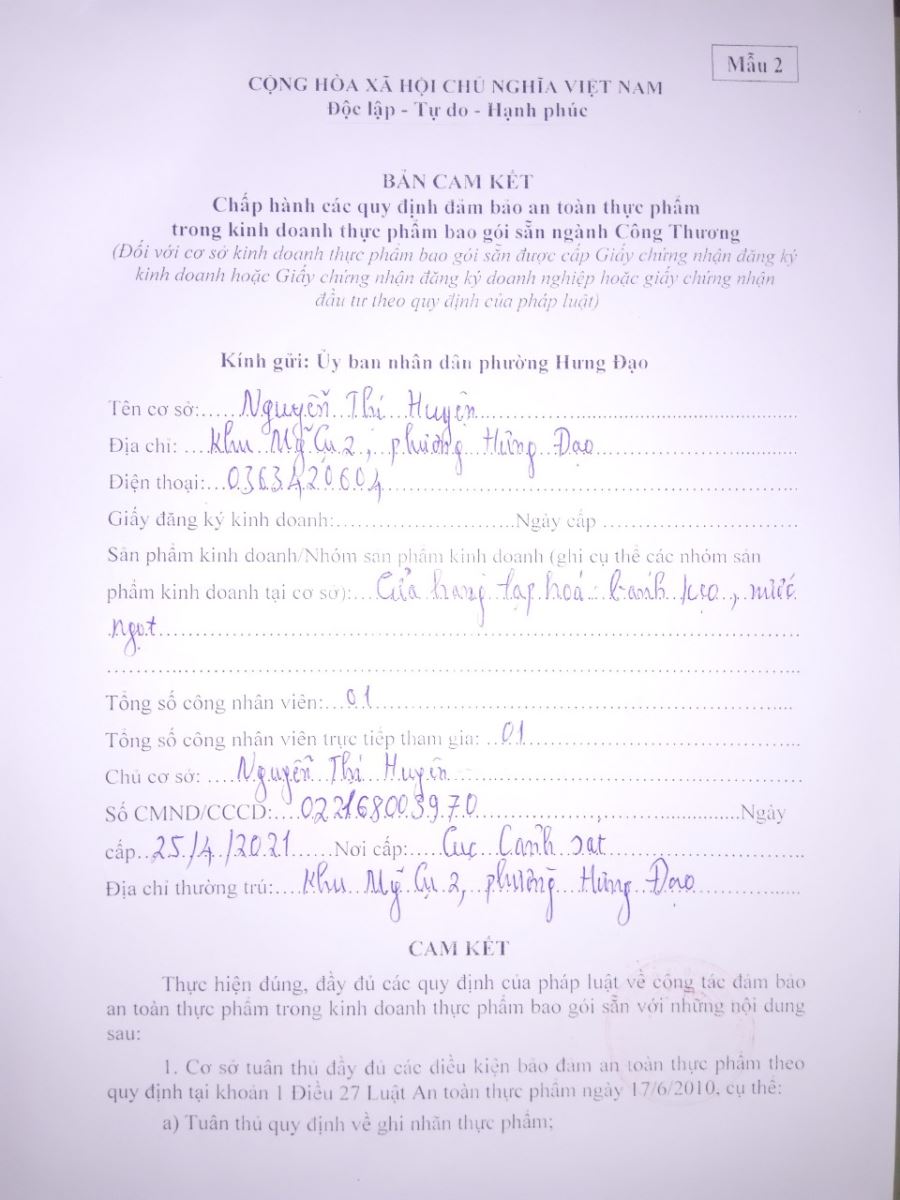 Mẫu 2
CỘNG HÒA XÃ HỘI CHỦ NGHĨA VIỆT NAM
Độc lập - Tự do - Hạnh phúc
BẢN CAM KẾT
Chấp hành các quy định đảm bảo an toàn thực phẩm
trong kinh doanh thực phẩm bao gói sẵn ngành Công Thương
(Đối với cơ sở kinh doanh thực phẩm bao gói sẵn được cấp Giấy chứng nhận đăng ký
kinh doanh hoặc Giấy chứng nhận đăng ký doanh nghiệp hoặc giấy chứng nhận
đầu tư theo quy định của pháp luật)
Kính gửi: Ủy ban nhân dân phường Hưng Đạo
Tên cơ sở: Nguyễn Thị Huyên
Địa chỉ: Khu Mỹ Cụ 2, phường Hưng Đạo
Điện thoại: 0363420604
Giấy đăng ký kinh doanh: Ngày cấp
Sản phẩm kinh doanh/Nhóm sản phẩm kinh doanh (ghi cụ thể các nhóm sản
phẩm kinh doanh tại cơ sở): Cửa hàng tạp hoá: bánh kẹo, nước
ngọt
Tổng số công nhân viên: 01
Tổng số công nhân viên trực tiếp tham gia: 01
Chủ cơ sở: Nguyễn Thị Huyên
Số CMND/CCCD: 022168003970, Ngày
cấp 25/4/2021 Nơi cấp: Cục Cảnh sát
Địa chỉ thường trú: Khu Mỹ Cụ 2, phường Hưng Đạo
CAM KẾT
Thực hiện đúng, đầy đủ các quy định của pháp luật về công tác đảm bảo
an toàn thực phẩm trong kinh doanh thực phẩm bao gói sẵn với những nội dung
sau:
1. Cơ sở tuân thủ đầy đủ các điều kiện bảo đảm an toàn thực phẩm theo
quy định tại khoản 1 Điều 27 Luật An toàn thực phẩm ngày 17/6/2010, cụ thể:
a) Tuân thủ quy định về ghi nhãn thực phẩm;